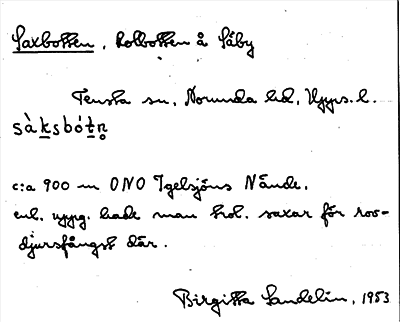 Saxbotten, kolbotten å Säby
Tensta sn, Norunda hd, Upps. l.
sàksbót̲n̥
c:a 900 m ONO Igelsjöns Nände,
enl. uppg. hade man hol. saxar för rov-
djursfångst där.
Birgitta Sandelin, 1953